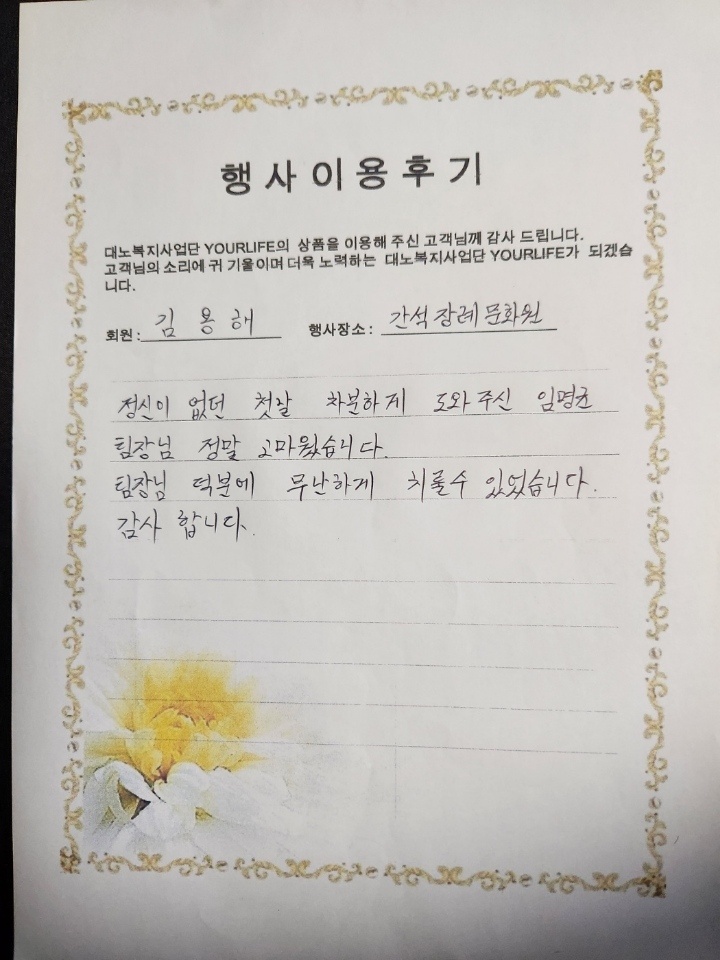 행사이용후기
대노복지사업단 YOURLIFE의 상품을 이용해 주신 고객님께 감사 드립니다.
고객님의 소리에 귀 기울이며 더욱 노력하는 대노복지사업단 YOURLIFE가 되겠습
니다.
회원 : 김용해 행사장소 : 간석장례문화원
정신이 없던 첫날 차분하게 도와주신 임명균
팀장님 정말 고마웠습니다.
팀장님 덕분에 무난하게 치룰수 있었습니다.
감사 합니다.